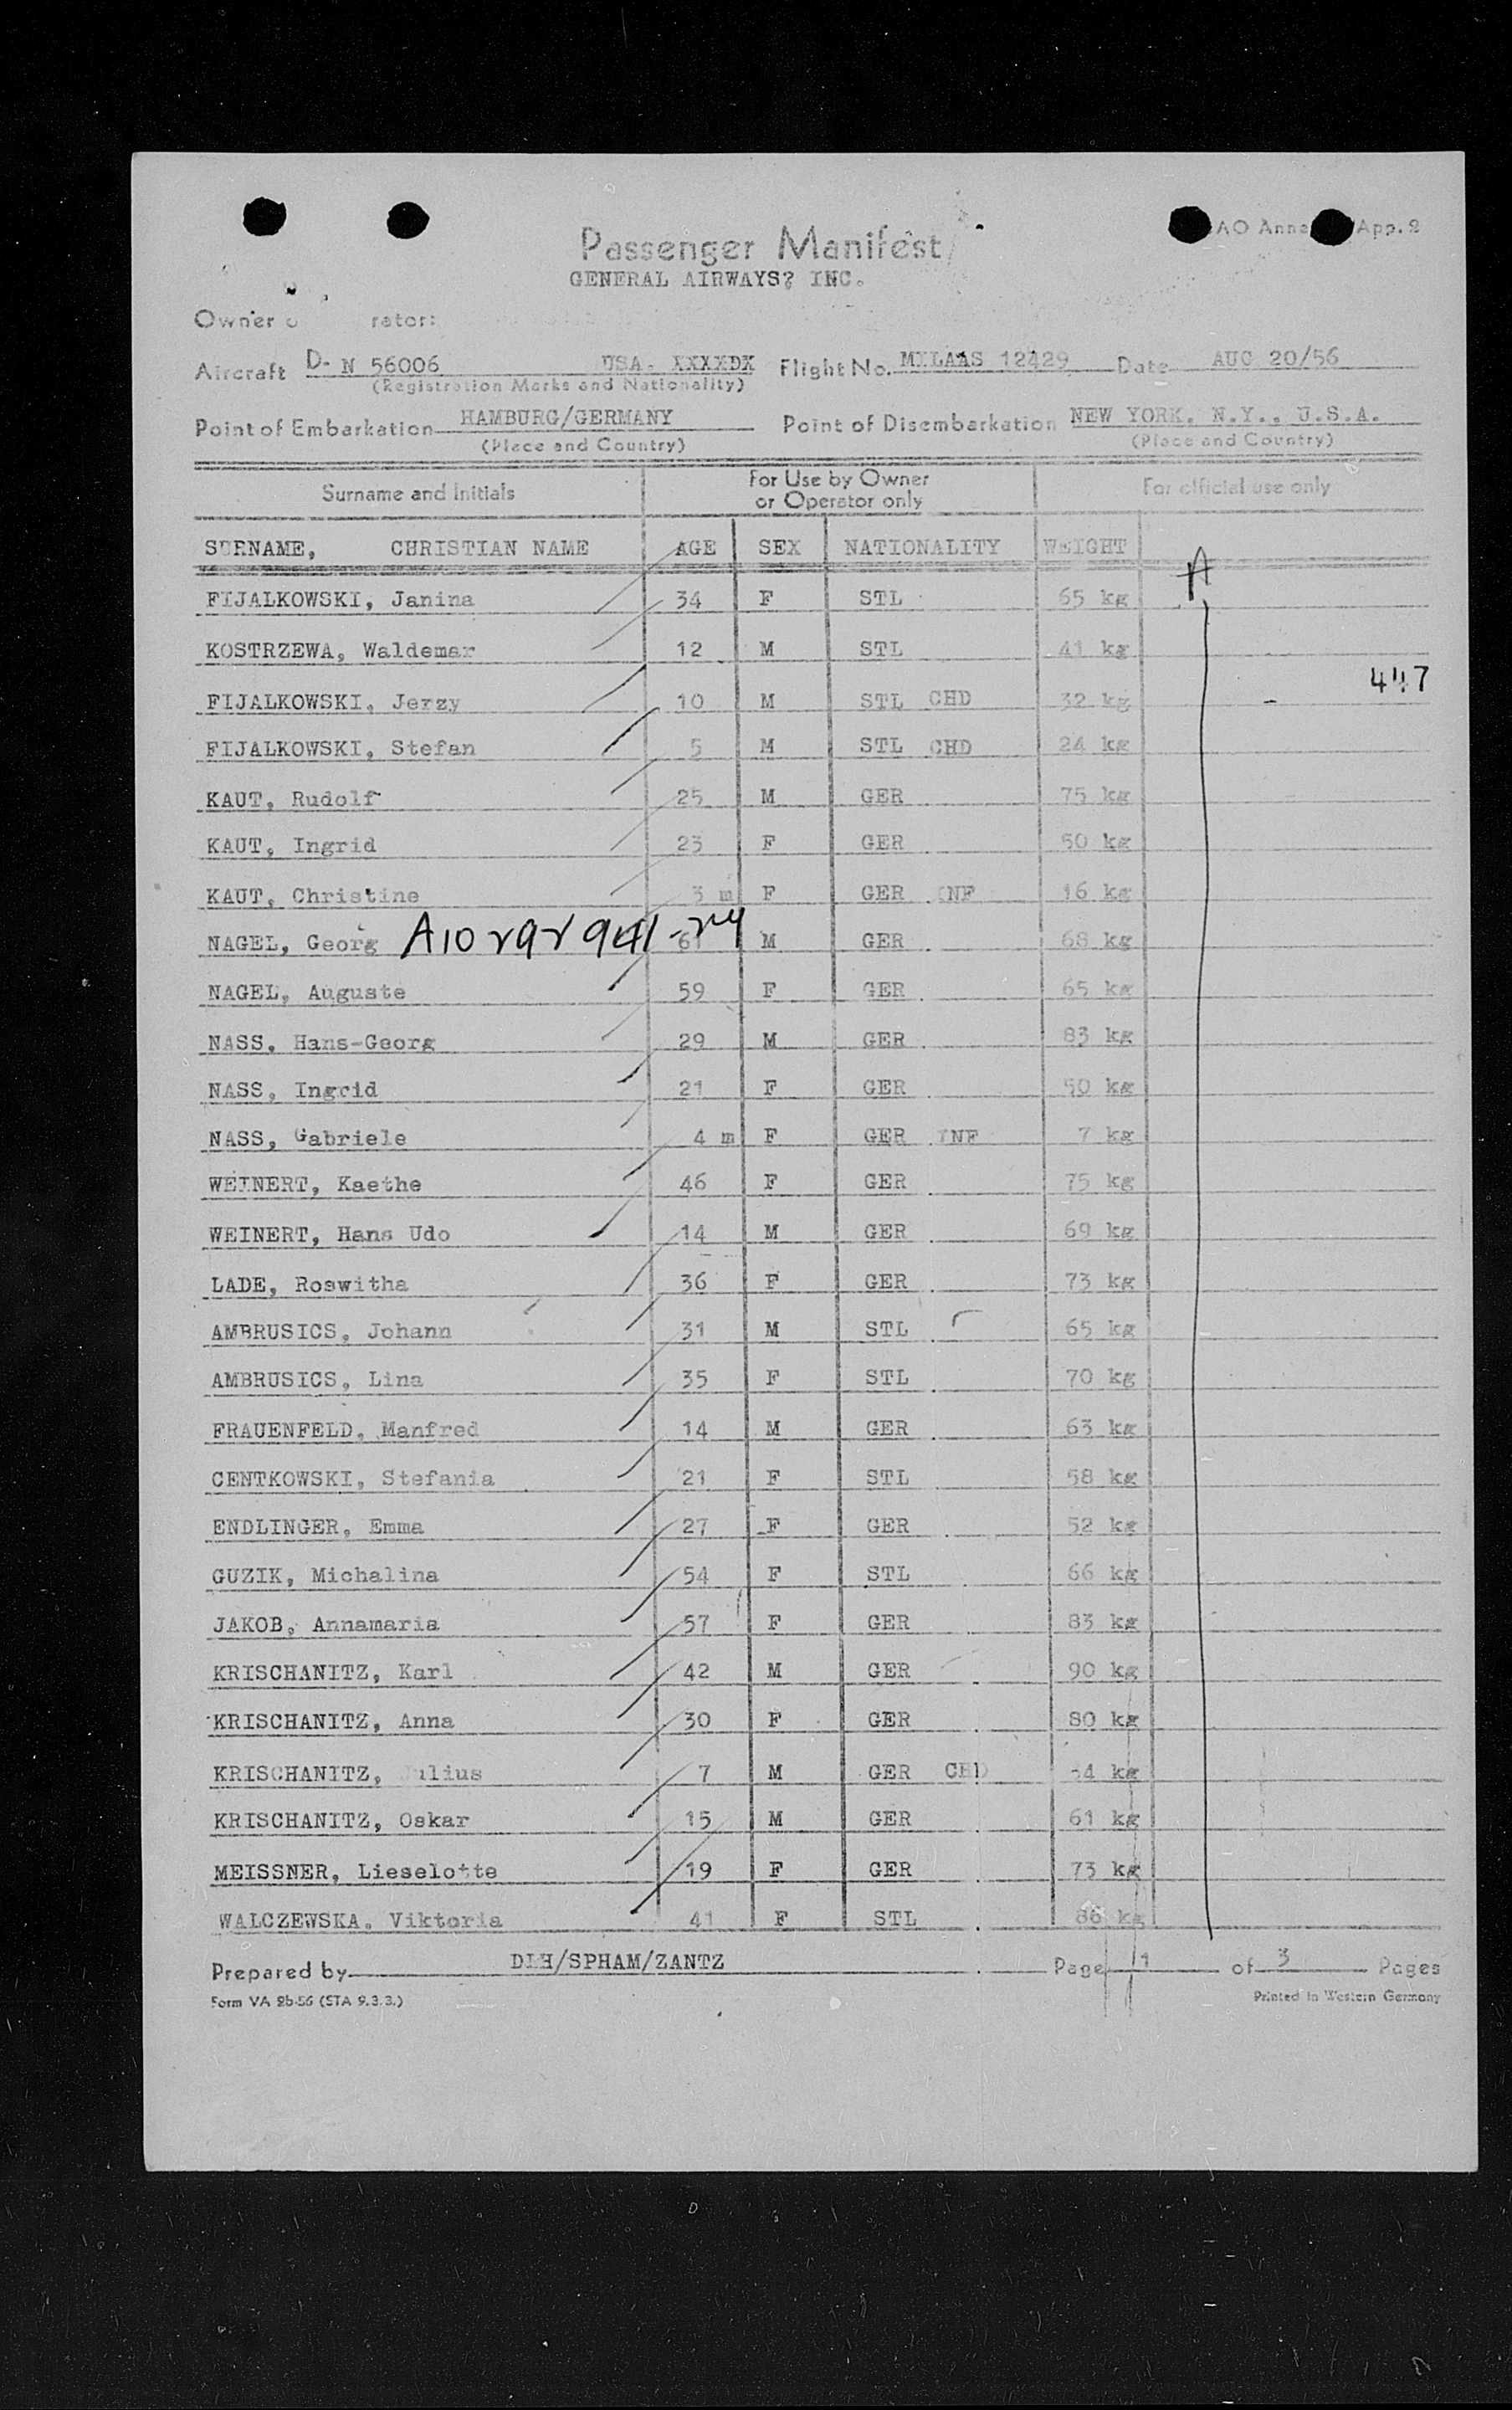 App. 2
Passenger Manifest
GENERAL AIRWAYS? INC.
Owner o rator:
Aircraft D- N 56006 USA. XXXXDX Flight No. MILAAS 12429 Date AUG 20/56
(Registration Marks and Nationality)
Point of Embarkation HAMBURG/GERMANY Point of Disembarkation NEW YORK. N.Y., U.S.A.
(Place and Country) (Place and Country)
Surname and Initials For Use by Owner or Operator only For official use only
SURNAME, CHRISTIAN NAME AGE SEX NATIONALITY WEIGHT
A
FIJALKOWSKI, Janina 34 F STL 65 kg
KOSTRZEWA, Waldemar 12 M STL 41 kg
447
FIJALKOWSKI, Jerzy 10 M STL CHD 32 kg
FIJALKOWSKI, Stefan 5 M STL CHD 24 kg
KAUT, Rudolf 25 M GER 75 kg
KAUT, Ingrid 23 F GER 50 kg
KAUT, Christine 3 m F GER INF 16 kg
NAGEL, Georg 61 M GER 68 kg
NAGEL, Auguste 59 F GER 65 kg
NASS, Hans-Georg 29 M GER 83 kg
NASS, Ingrid 21 F GER 50 kg
NASS, Gabriele 4 m F GER INF 7 kg
WEINERT, Kaethe 46 F GER 75 kg
WEINERT, Hans Udo 14 M GER 69 kg
LADE, Roswitha 36 F GER 73 kg
AMBRUSICS, Johann 31 M STL 65 kg
AMBRUSICS, Lina 35 F STL 70 kg
FRAUENFELD, Manfred 14 M GER 63 kg
CENTKOWSKI, Stefania 21 F STL 58 kg
ENDLINGER, Emma 27 F GER 52 kg
GUZIK, Michalina 54 F STL 66 kg
JAKOB, Annamaria 57 F GER 83 kg
KRISCHANITZ, Karl 42 M GER 90 kg
KRISCHANITZ, Anna 30 F GER 80 kg
KRISCHANITZ, Julius 7 M GER CHD kg
KRISCHANITZ, Oskar 15 M GER 61 kg
MEISSNER, Lieselotte 19 F GER 73 kg
WALCZEWSKA, Viktoria 41 F STL 86 kg
Prepared by DLH/SPHAM/ZANTZ Page 1 of 3 Pages
Form VA 2b-56 (STA 9.3.3.) Printed in Western Germany